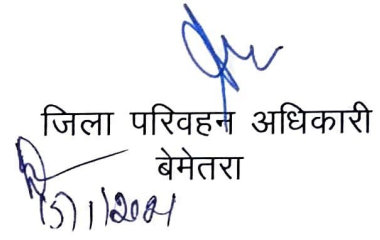 जिला परिवहन अधिकारी
बेमेतरा